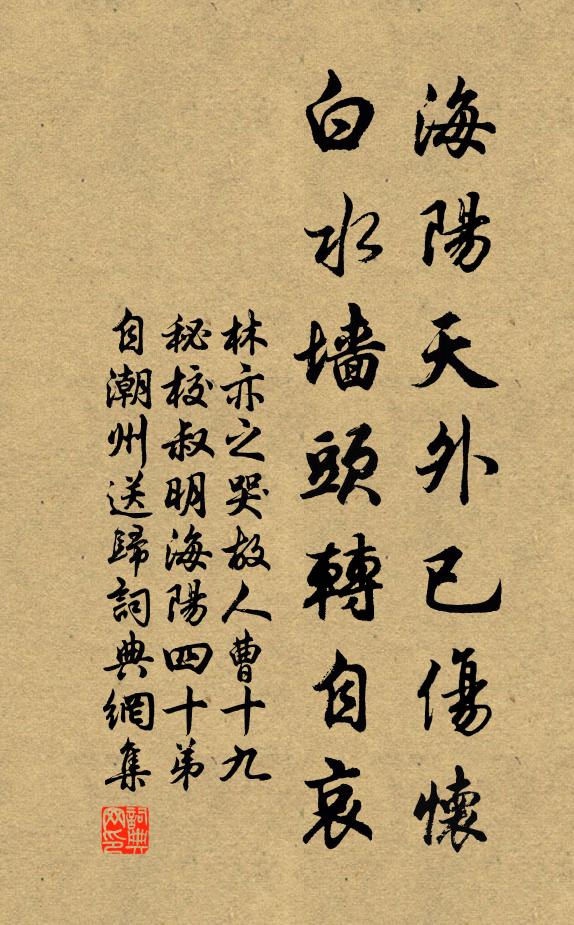 海陽天外已傷懷
白水墙頭轉自哀
林亦之哭故人曹十九
秘校叔明海陽四十弟
自潮州送歸詞典網集
詞典网印